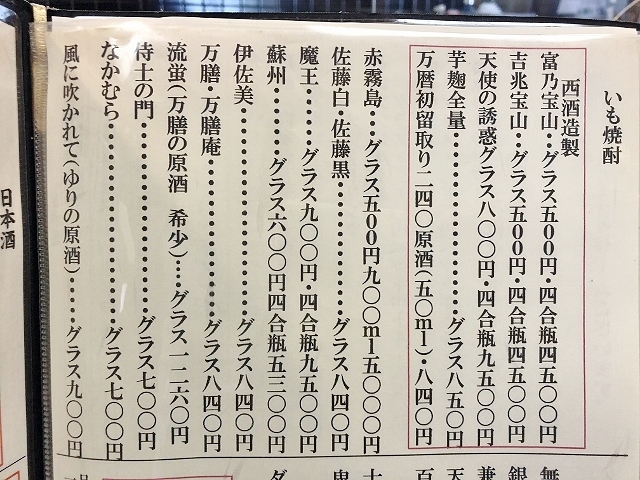 いも焼酎
西酒造製
富乃宝山‥グラス五00円・四合瓶四五〇〇円
吉兆宝山‥グラス五00円・四合瓶四五〇〇円
天使の誘惑グラス八〇〇円・四合瓶九五〇〇円
芋麹全量‥‥‥‥‥‥‥‥‥グラス八五〇円
万暦初留取り二四〇原酒(五〇ml)・八四〇円
赤霧島‥‥グラス五00円九〇〇ml五〇〇〇円
佐藤白・佐藤黒‥‥‥‥‥‥‥グラス八四〇円
魔王‥‥‥グラス九〇〇円・四合瓶九五〇〇円
蘇州‥‥‥グラス六〇〇円四合瓶五三〇〇円
伊佐美‥‥‥‥‥‥‥‥‥‥グラス八四〇円
万膳・万膳庵‥‥‥‥‥‥‥‥グラス八四〇円
流蛍(万膳の原酒 希少)‥‥グラス一二六〇円
侍士の門‥‥‥‥‥‥‥‥‥グラス七〇〇円
なかむら‥‥‥‥‥‥‥‥‥グラス七〇〇円
風に吹かれて(ゆりの原酒)‥‥‥グラス九〇〇円
日本酒
無
銀
兼
天
百